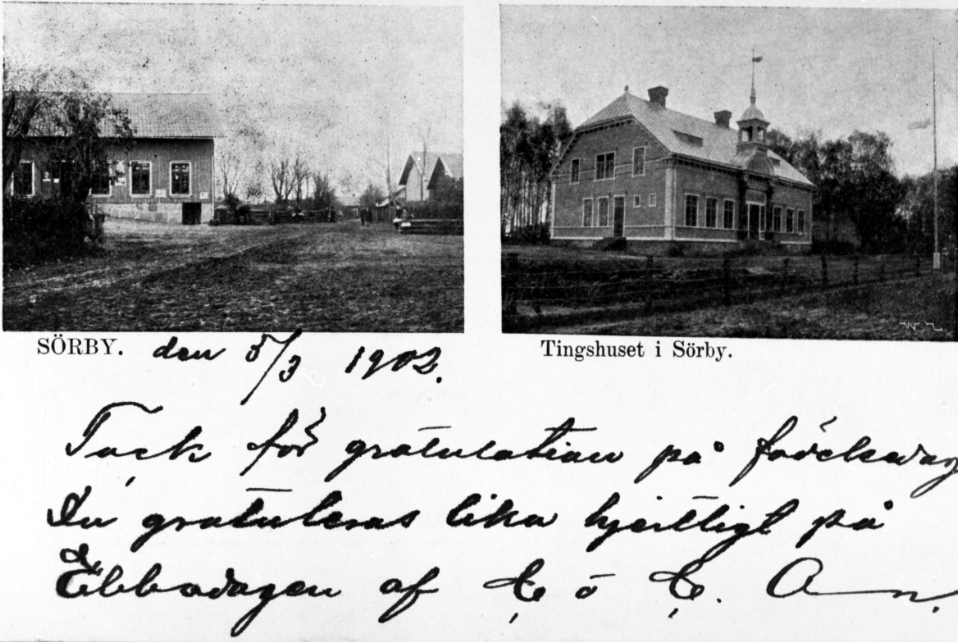 SÖRBY. den 5/3 1902.
Tingshuset i Sörby.
Tack för gratulation på födelsedag
Du gratuleras lika hjertligt på
Ebbadagen af E o E. A—n.